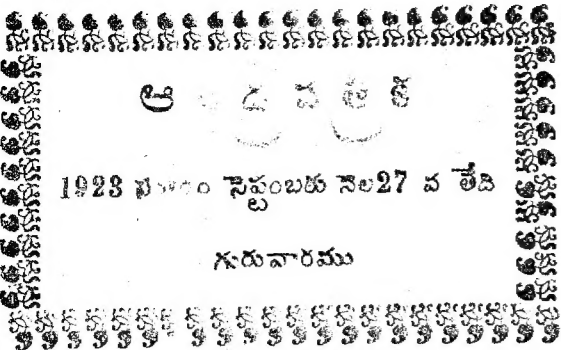 ఆంధ్రపత్రిక
1923 సెప్టంబరు నెల27 వ తేది
గురువారము